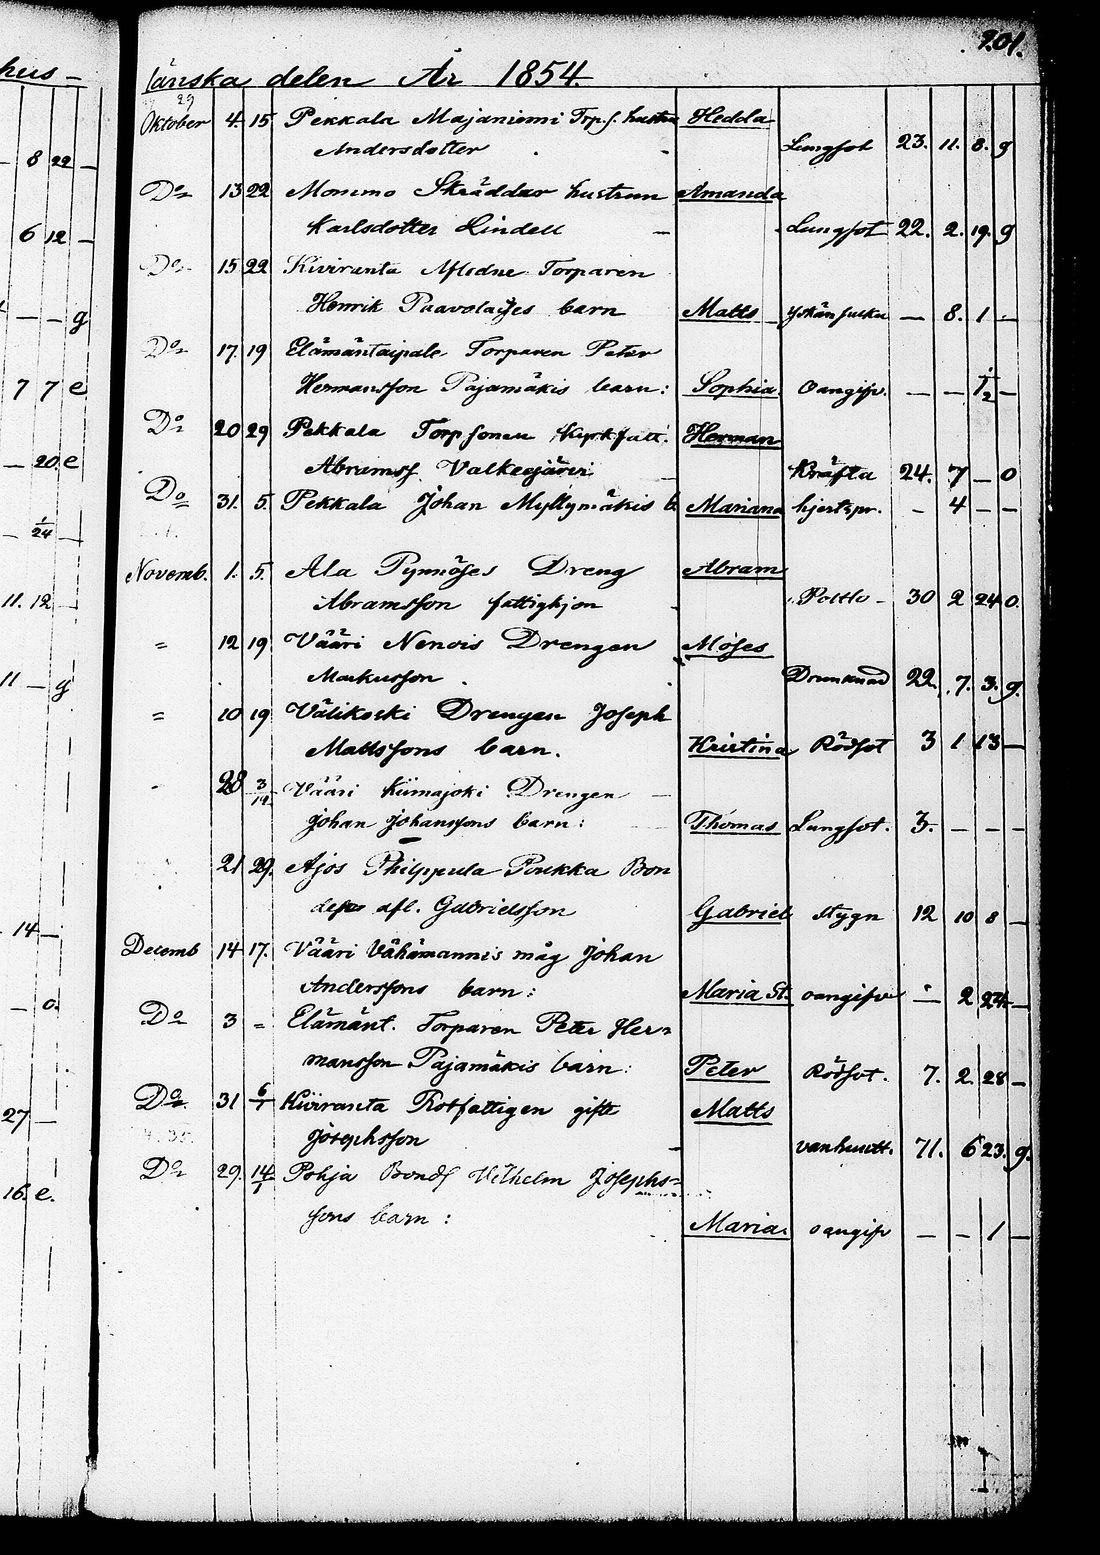 201.
hus –
länska delen År 1854.
29
Oktober 4. 15 Pekkala Majaniemi Trp.s. hustru Hedda
Andersdotter Lungsot 23. 11. 8. g
8 22 –
Do 13 22 Mommo Skräddar hustrun Amanda
Karlsdotter Lindell – Lungsot 22. 2. 19. g
6 12 –
Do 15 22 Kiviranta Torparen
Henrik barn Matts – 8. 1 –
– – g
Do 17. 19 Elämäntaipale Torparen Peter
Hermansson Pajamäkis barn: Sophia oangifv. – – 1/2 –
7 7 e
Do 20 29 Pekkala Herman
Abramss. Valkeajärvi – Kräfta 24. 7 – 0
– 20 e
Do 31. 5. Pekkala Johan Myllymäkis b. Mariana – 4 – –
– 1/24 –
Novemb. 1. 5. Ala Pynnöses Dreng Abram
Abramsson fattighjon – 30 2 24 0.
11. 12 –
= 12 19 Vääri Nenois Drengen Moses
Markusson Drunknad 22. 7. 3. g.
11 – g
= 10 19 Välikoski Drengen Joseph
Mattssons barn. Kristina Rödsot 3 1 13 –
28 3/12 Vääri Kumajoki Drengen –
Johan Johanssons barn: Thomas Lungsot. 3. – – –
21 29. Ajos Philppula Poukka Bon
afl. Gabrielsson Gabriel stygn 12 10 8 –
14 –
Decemb 14 17. Vääri Vähämannis måg Johan
Anderssons barn: Maria St. oangifv – 2 24 –
– 0.
Do 3 = Elämänt. Torparen Peter Her=
mansson Pajamäkis barn: Peter Rödsot. 7. 2. 28 –
Do 31 6/1 Kiviranta Rotfattigen gifte Matts
Josephsson – 71. 6 23. g.
27 –
Do 29. 14/1 Pohja Bond. Vilhelm Josephs=
sons barn: Maria. oangifv – – 1 –
16. e.